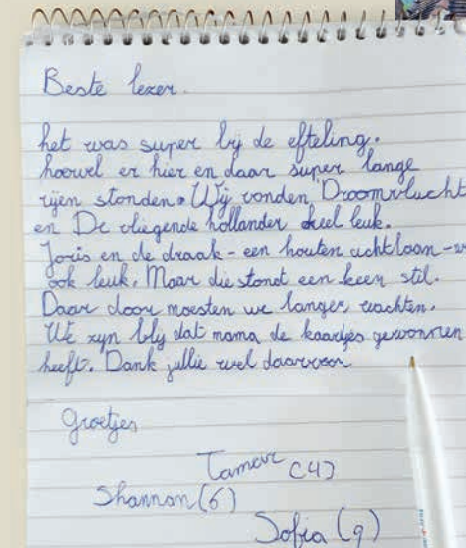 Beste lezer.
het was super bij de efteling.
hoewel er hier en daar super lange
rijen stonden. Wij vonden Droomvlucht
en De vliegende hollander heel leuk.
Joris en de draak - een houten achtbaan -
ook leuk. Maar die stond een keer stil.
Daar door moesten we langer wachten.
We zijn blij dat mama de kaartjes gewonnen
heeft. Dank jullie wel daarvoor
Groetjes
Tamar (4)
Shannon (6)
Sofia (9)